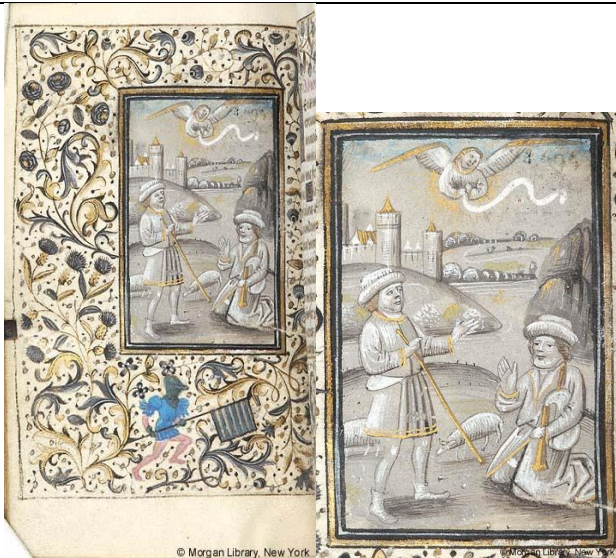 © Morgan Library, New York
© Morgan Library, New York